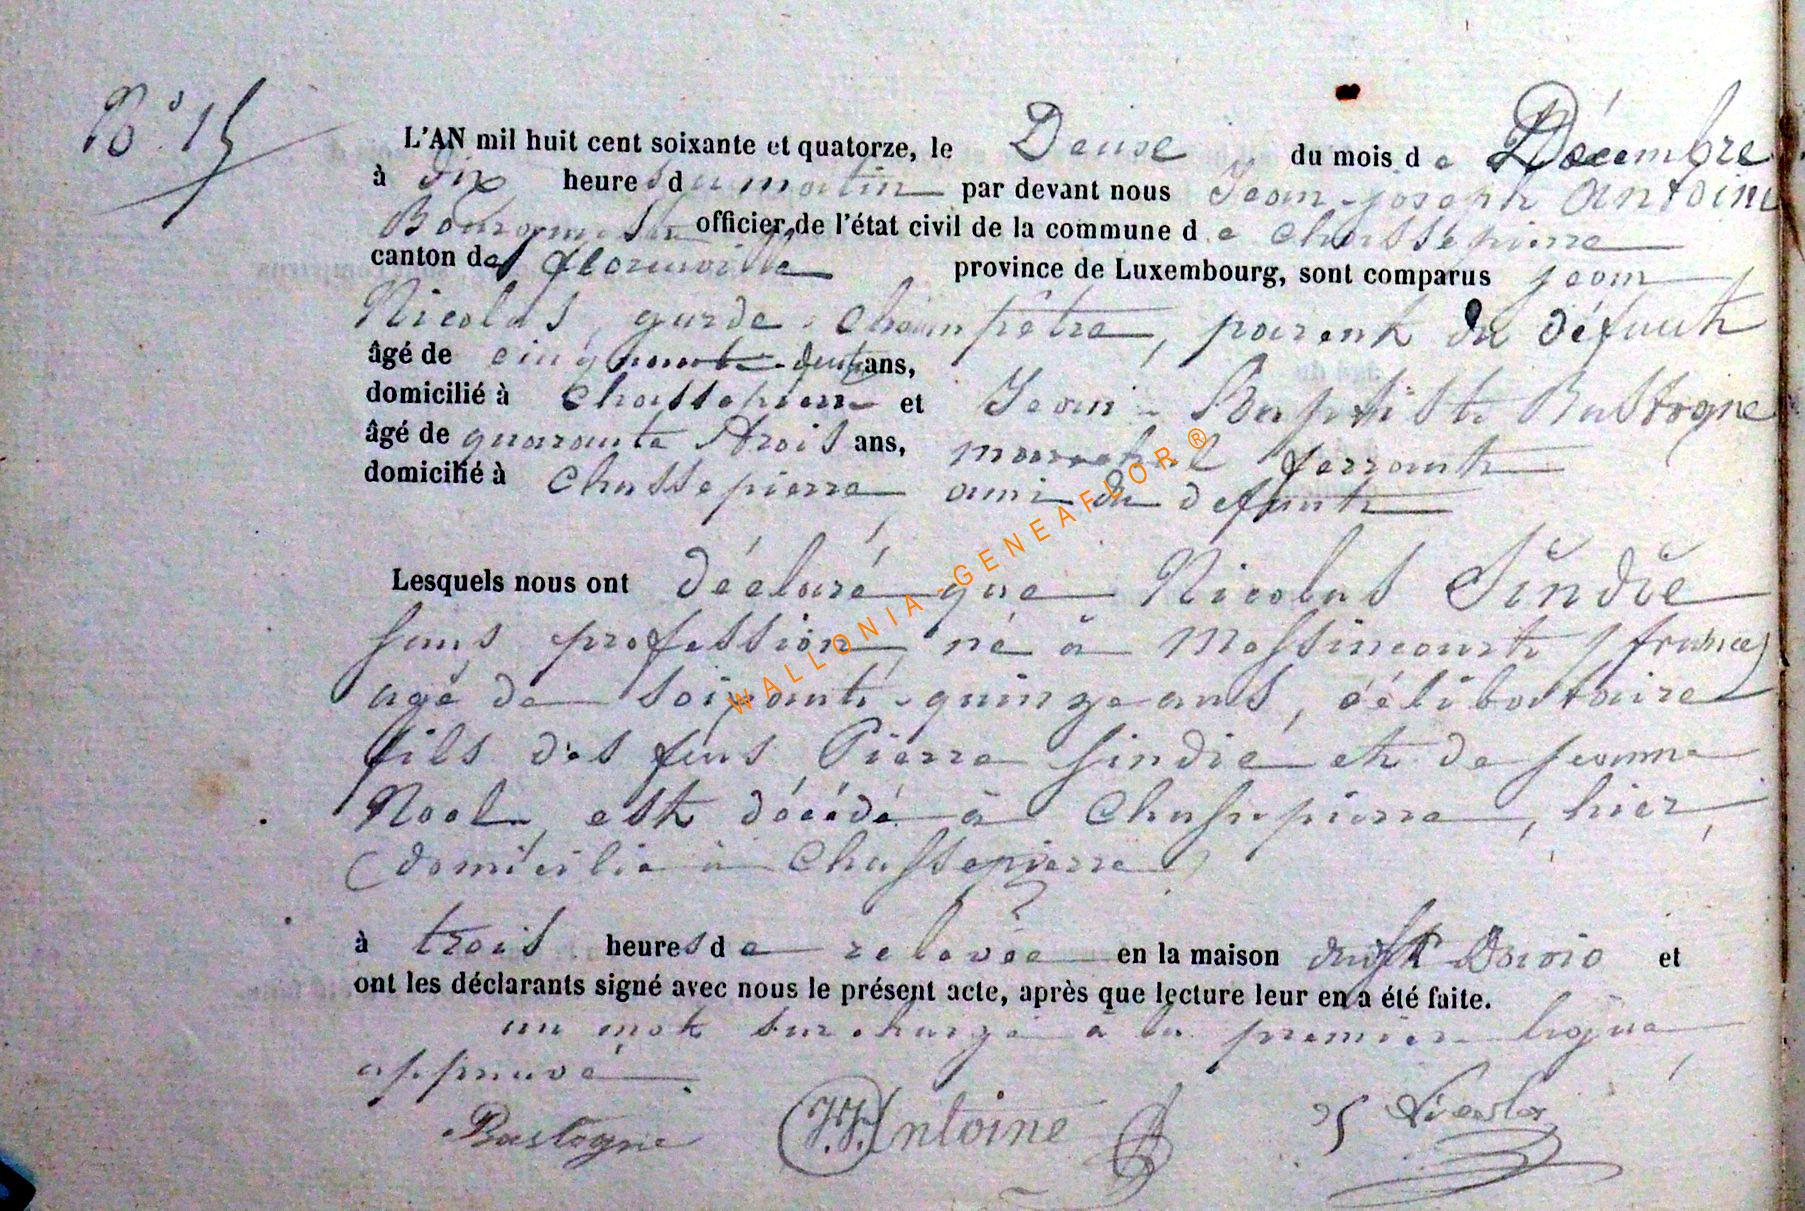 N° 15
L'AN mil huit cent soixante et quatorze, le Deuse du mois de Décembre
à Dix heures du matin par devant nous Jean-joseph Antoine
Bourgmestre officier de l'état civil de la commune de Chassepierre
canton de florenville province de Luxembourg, sont comparus jean
Nicolas, garde-Champêtre, parent du défunt
âgé de cinquante-deux ans,
domicilié à Chassepierre et Jean-Baptiste Bastogne
âgé de quarante trois ans, marechal ferrant
domicilié à Chassepierre ami du defunt
Lesquels nous ont déclaré que Nicolas Sindié
sans profession, né à Messincourt (france)
agé de soixante-quinze ans, célibataire
fils des feus Pierre Sindié et de jeanne
Noel, est décédé à Chassepierre, hier,
(domicilié à Chassepierre)
à trois heures de relevée en la maison et
ont les déclarants signé avec nous le présent acte, après que lecture leur en a été faite.
un mot surchargé à la premier ligne
appruvé
Bastogne J.J. Antoine Nicolas
WALLONIA-GENEAFLOR®